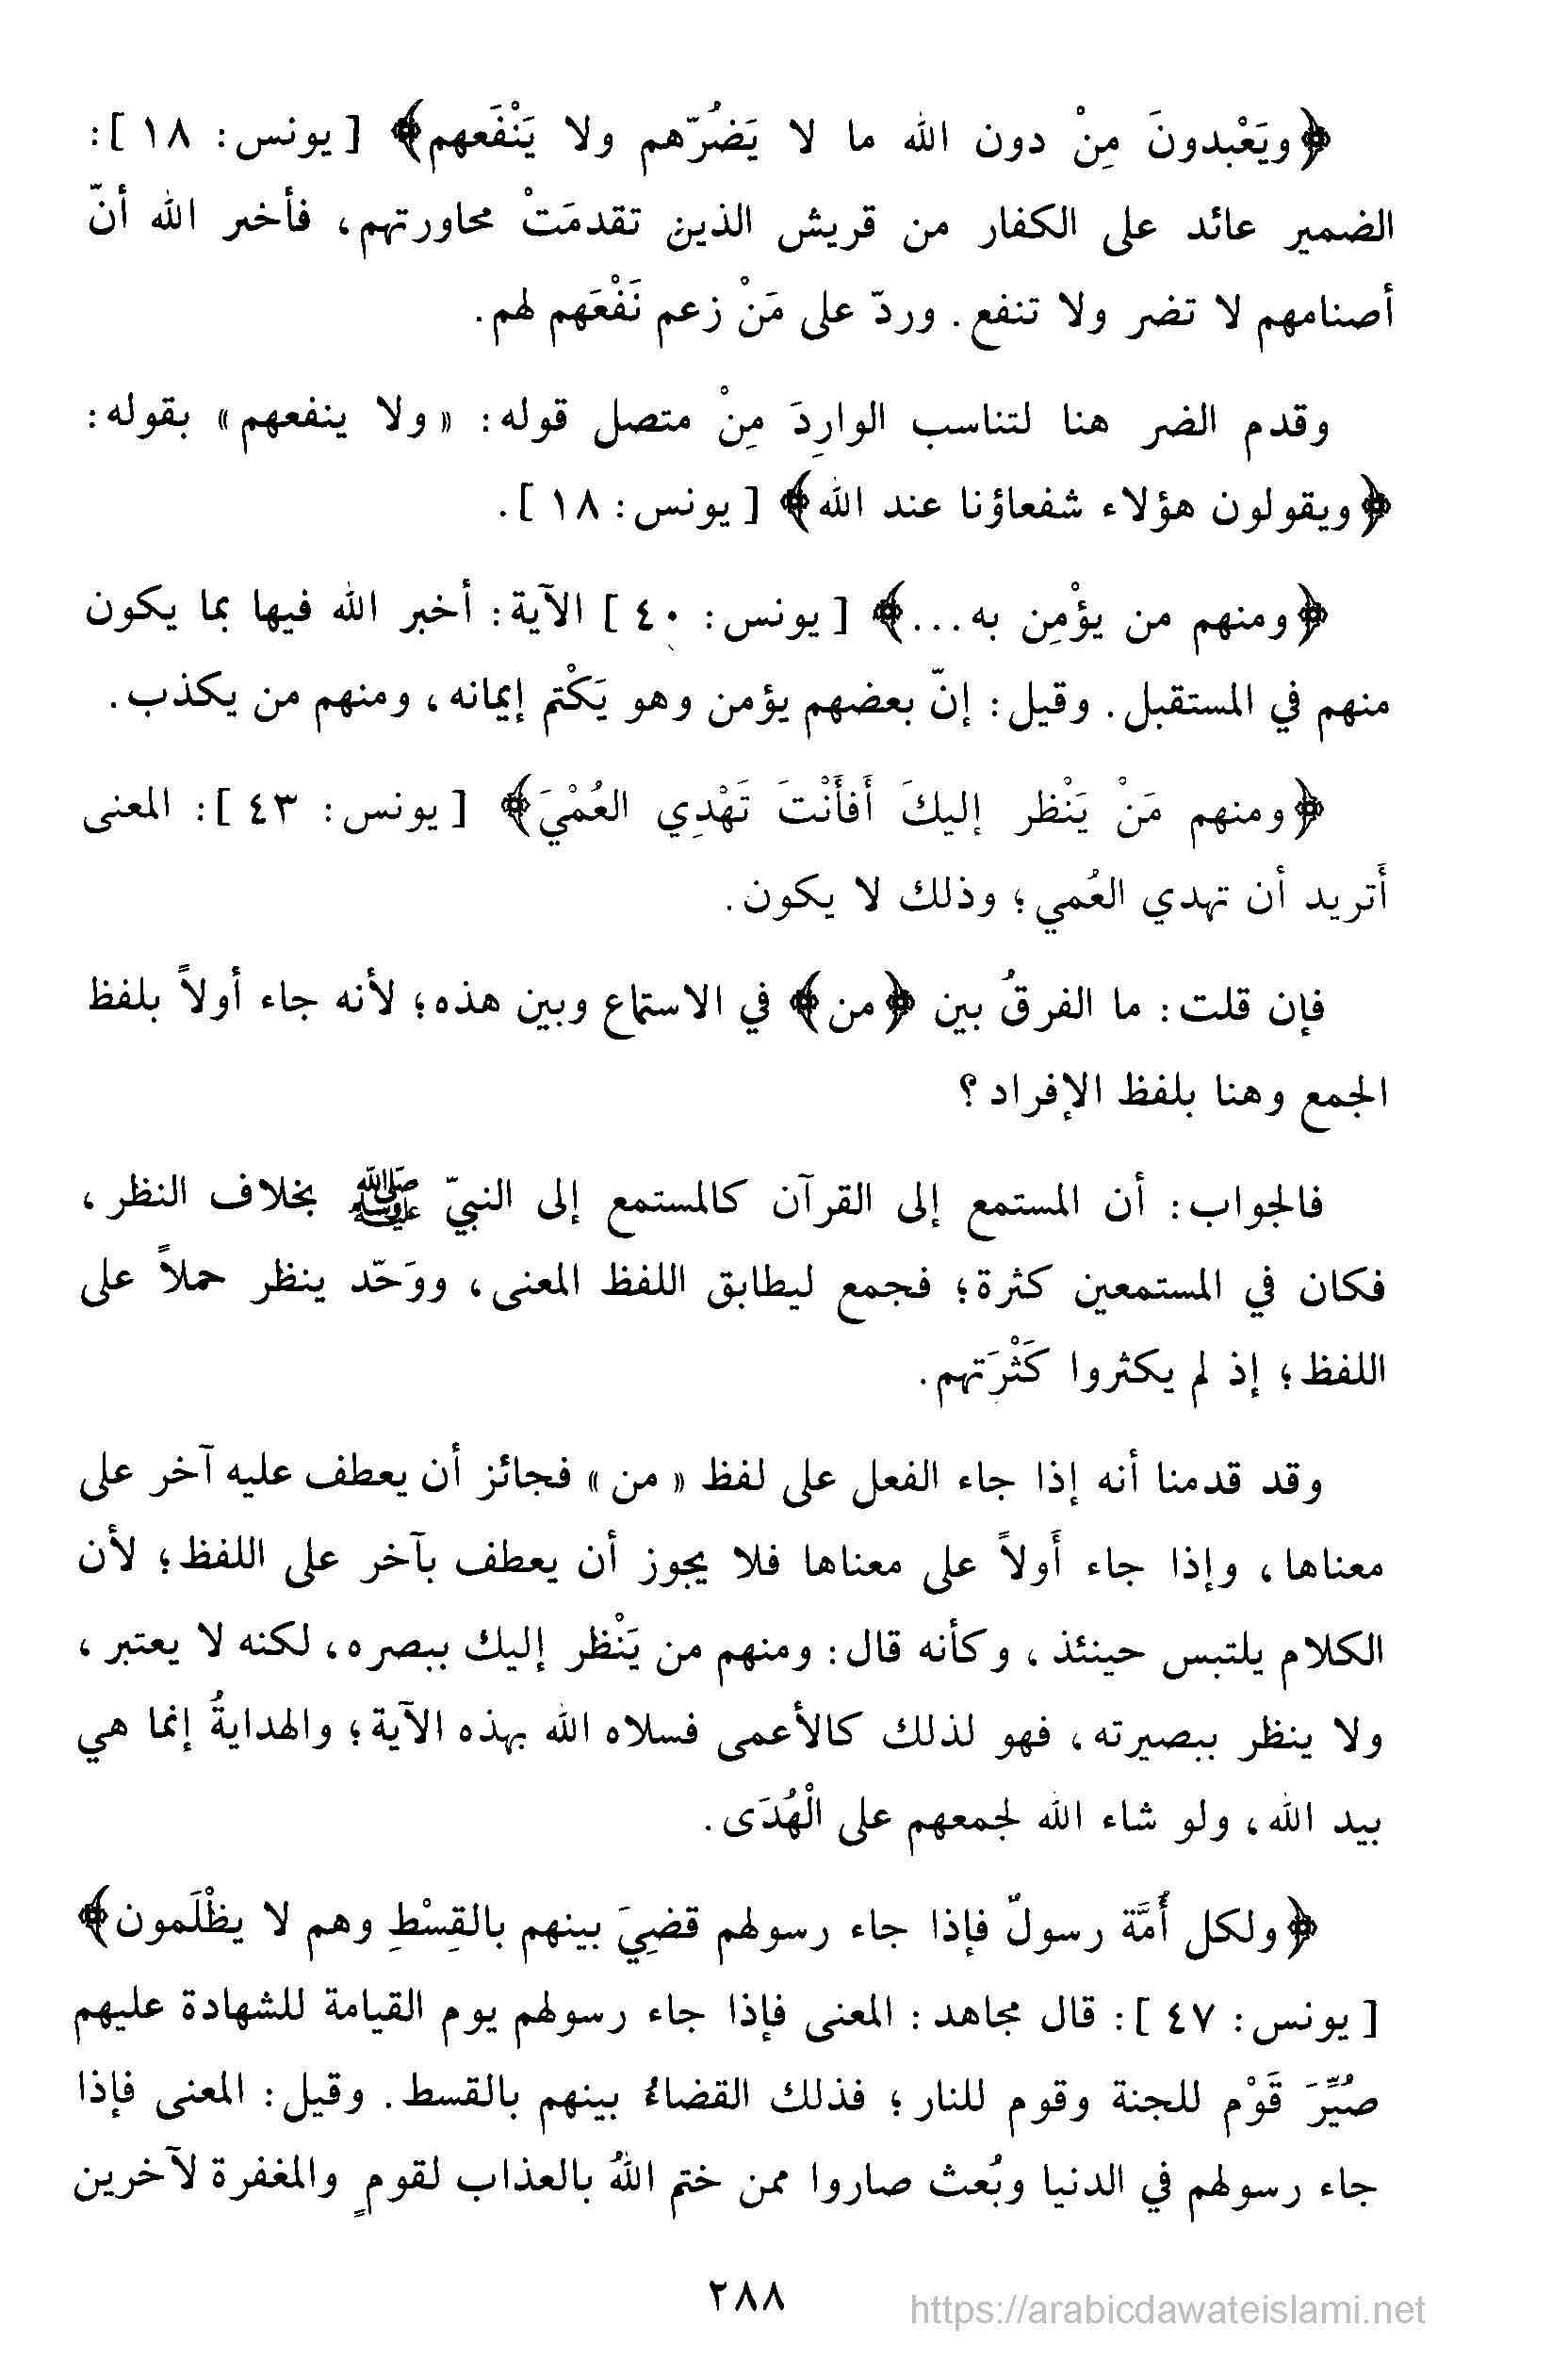 ﴿ويَعْبدونَ مِنْ دون الله ما لا يَضُرّهم ولا يَنْفَعهم﴾ [ يونس: ١٨ ]:
الضمير عائد على الكفار من قريش الذين تقدمَتْ محاورتهم، فأخبر الله أنّ
أصنامهم لا تضر ولا تنفع. وردّ على مَنْ زعم نَفْعَهم لهم.
وقدم الضر هنا لتناسب الوارِدَ مِنْ متصل قوله: « ولا ينفعهم » بقوله:
﴿ويقولون هؤلاء شفعاؤنا عند الله﴾ [ يونس: ١٨ ].
﴿ومنهم من يؤْمِن به...﴾ [ يونس: ٤٠ ] الآية: أخبر الله فيها بما يكون
منهم في المستقبل. وقيل: إنّ بعضهم يؤمن وهو يَكْتم إيمانه، ومنهم من يكذب.
﴿ومنهم مَنْ يَنْظر إليكَ أَفأَنْتَ تَهْدِي العُمْيَ﴾ [ يونس: ٤٣ ]: المعنى
أَتريد أن تهدي العُمي؛ وذلك لا يكون.
فإن قلت: ما الفرقُ بين ﴿من﴾ في الاستماع وبين هذه؛ لأنه جاء أولاً بلفظ
الجمع وهنا بلفظ الإفراد ؟
فالجواب: أن المستمع إلى القرآن كالمستمع إلى النبيّ ﷺ بخلاف النظر،
فكان في المستمعين كثرة؛ فجمع ليطابق اللفظ المعنى، ووَحّد ينظر حملاً على
اللفظ؛ إذ لم يكثروا كَثْرَتهم.
وقد قدمنا أنه إذا جاء الفعل على لفظ « من » فجائز أن يعطف عليه آخر على
معناها، وإذا جاء أَولاً على معناها فلا يجوز أن يعطف بآخر على اللفظ؛ لأن
الكلام يلتبس حينئذ، وكأنه قال: ومنهم من يَنْظر إليك ببصره، لكنه لا يعتبر،
ولا ينظر ببصيرته، فهو لذلك كالأعمى فسلاه الله بهذه الآية؛ والهدايةُ إنما هي
بيد الله، ولو شاء الله لجمعهم على الْهُدَى.
﴿ولكل أُمَّة رسولٌ فإذا جاء رسولهم قضِيَ بينهم بالقِسْطِ وهم لا يظْلَمون﴾
[ يونس: ٤٧ ]: قال مجاهد: المعنى فإذا جاء رسولهم يوم القيامة للشهادة عليهم
صُيِّرَ قَوْم للجنة وقوم للنار؛ فذلك القضاءُ بينهم بالقسط. وقيل: المعنى فإذا
جاء رسولهم في الدنيا وبُعث صاروا ممن ختم اللهُ بالعذاب لقومٍ والمغفرة لآخرين
٢٨٨
https://arabicdawateislami.net